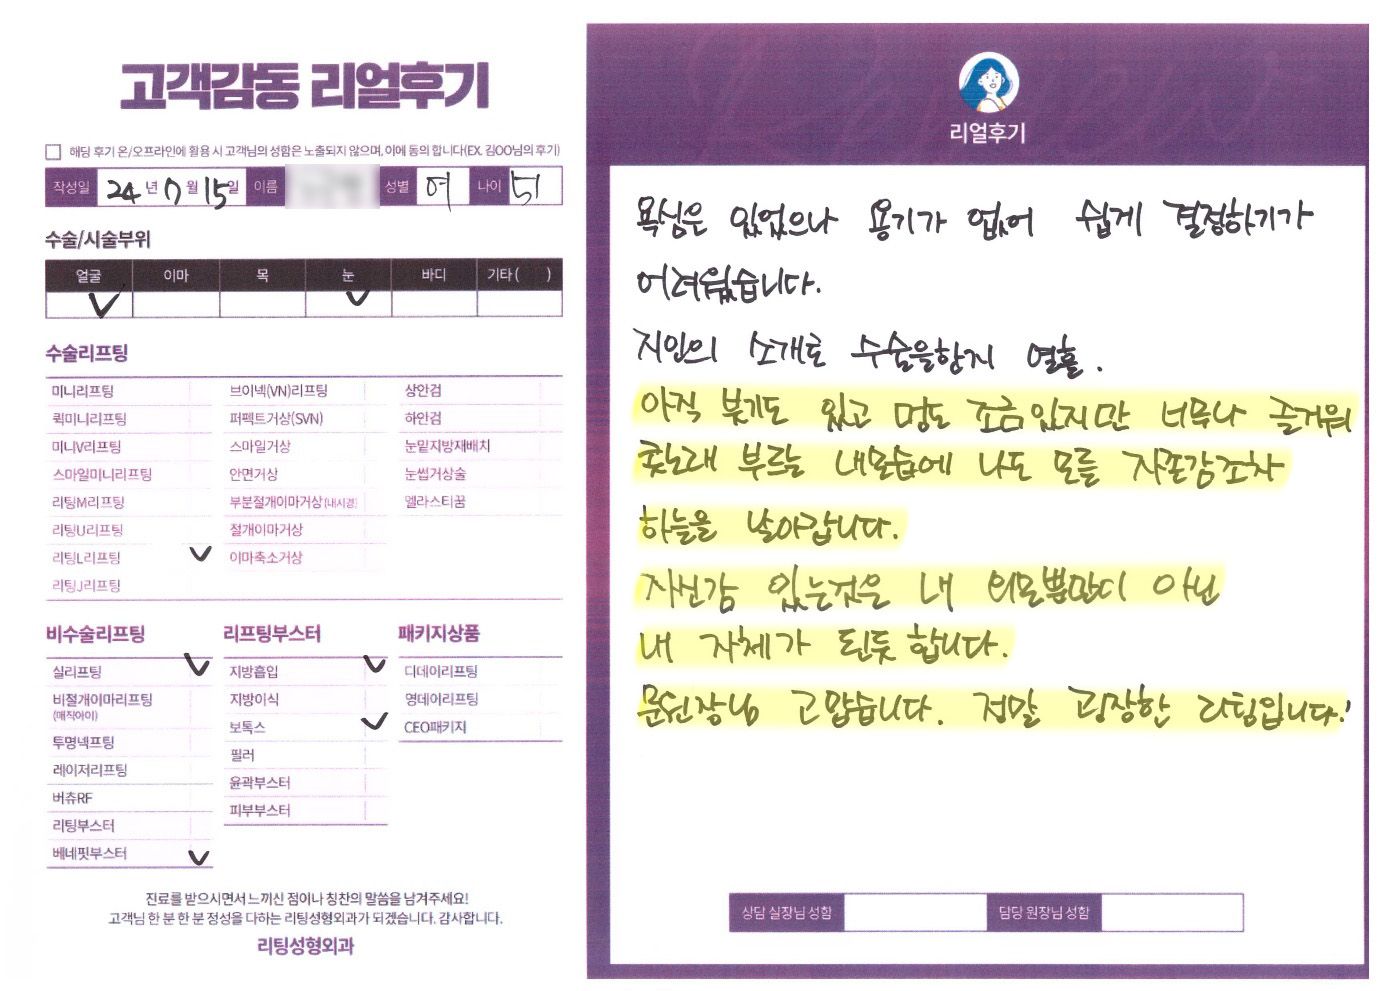 고객감동 리얼후기
해당 후기 온/오프라인에 활용 시 고객님의 성함은 노출되지 않으며, 이에 동의 합니다(EX. 김OO님의 후기)
작성일 24년 7월 15일 이름 성별 여 나이 51
수술/시술부위
얼굴 이마 목 눈 바디 기타 ( )
수술리프팅
미니리프팅 브이넥(VN)리프팅 상안검
퀵미니리프팅 퍼펙트거상(SVN) 하안검
미니V리프팅 스마일거상 눈밑지방재배치
스마일미니리프팅 안면거상 눈썹거상술
리팅M리프팅 부분절개이마거상(내시경) 엘라스티꿈
리팅U리프팅 절개이마거상
리팅L리프팅 이마축소거상
리팅J리프팅
비수술리프팅 리프팅부스터 패키지상품
실리프팅 지방흡입 디데이리프팅
비절개이마리프팅 지방이식 영데이리프팅
(매직아이)
보톡스 CEO패키지
투명넥프팅 필러
레이저리프팅 윤곽부스터
버츄RF 피부부스터
리팅부스터
베네핏부스터
진료를 받으시면서 느끼신 점이나 칭찬의 말씀을 남겨주세요!
고객님 한 분 한 분 정성을 다하는 리팅성형외과가 되겠습니다. 감사합니다.
리팅성형외과
리얼후기
욕심은 있었으나 용기가 없어 쉽게 결정하기가
어려웠습니다.
지인의 소개로 수술을한지 열흘.
아직 붓기도 있고 멍도 조금있지만 너무나 즐거워
콧노래 부르는 내모습에 나도 모를 자존감조차
하늘을 날아갑니다.
자신감 있는것은 내 외모뿐만이 아닌
내 자체가 된듯 합니다.
문원장님 고맙습니다. 정말 굉장한 리팅입니다!
상담 실장님 성함 담당 원장님 성함